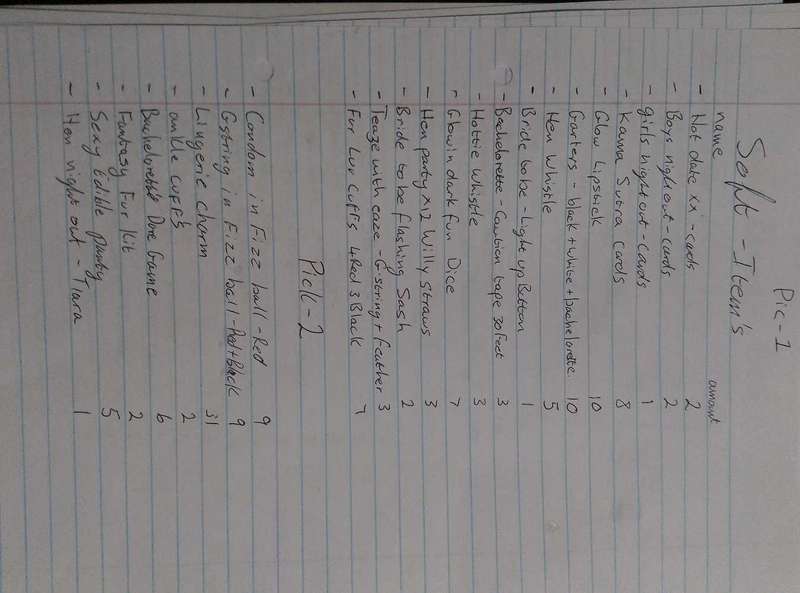 Pic-1
Soft - Item's
name amount
- Hot date xx - cards 2
- Boys night out - cards 2
- girls night out - cards 1
- Kama Sutra cards 8
- Glow Lipstick 10
- Garters - black + white + bachelorette 10
- Hen Whistle 5
- Bride to be - Light up Button 1
- Bachelorette - Caution tape 30 feet 3
- Hottie Whistle 3
- Glow in dark fun Dice 7
- Hen party x12 Willy Straws 3
- Bride to be flashing Sash 2
- Tease with eaze - G-string + feather 3
- Fur Luv Cuffs 4 Red 3 Black 7
Pick-2
- Condom in Fizz ball - Red 9
- Gstring in Fizz ball - Red + Black 9
- Lingerie charm 31
- ankle cuffs 2
- Bachelorette Dare Game 6
- Fantasy Fur kit 2
- Sexy Edible panty 5
- Hen night out - Tiara 1